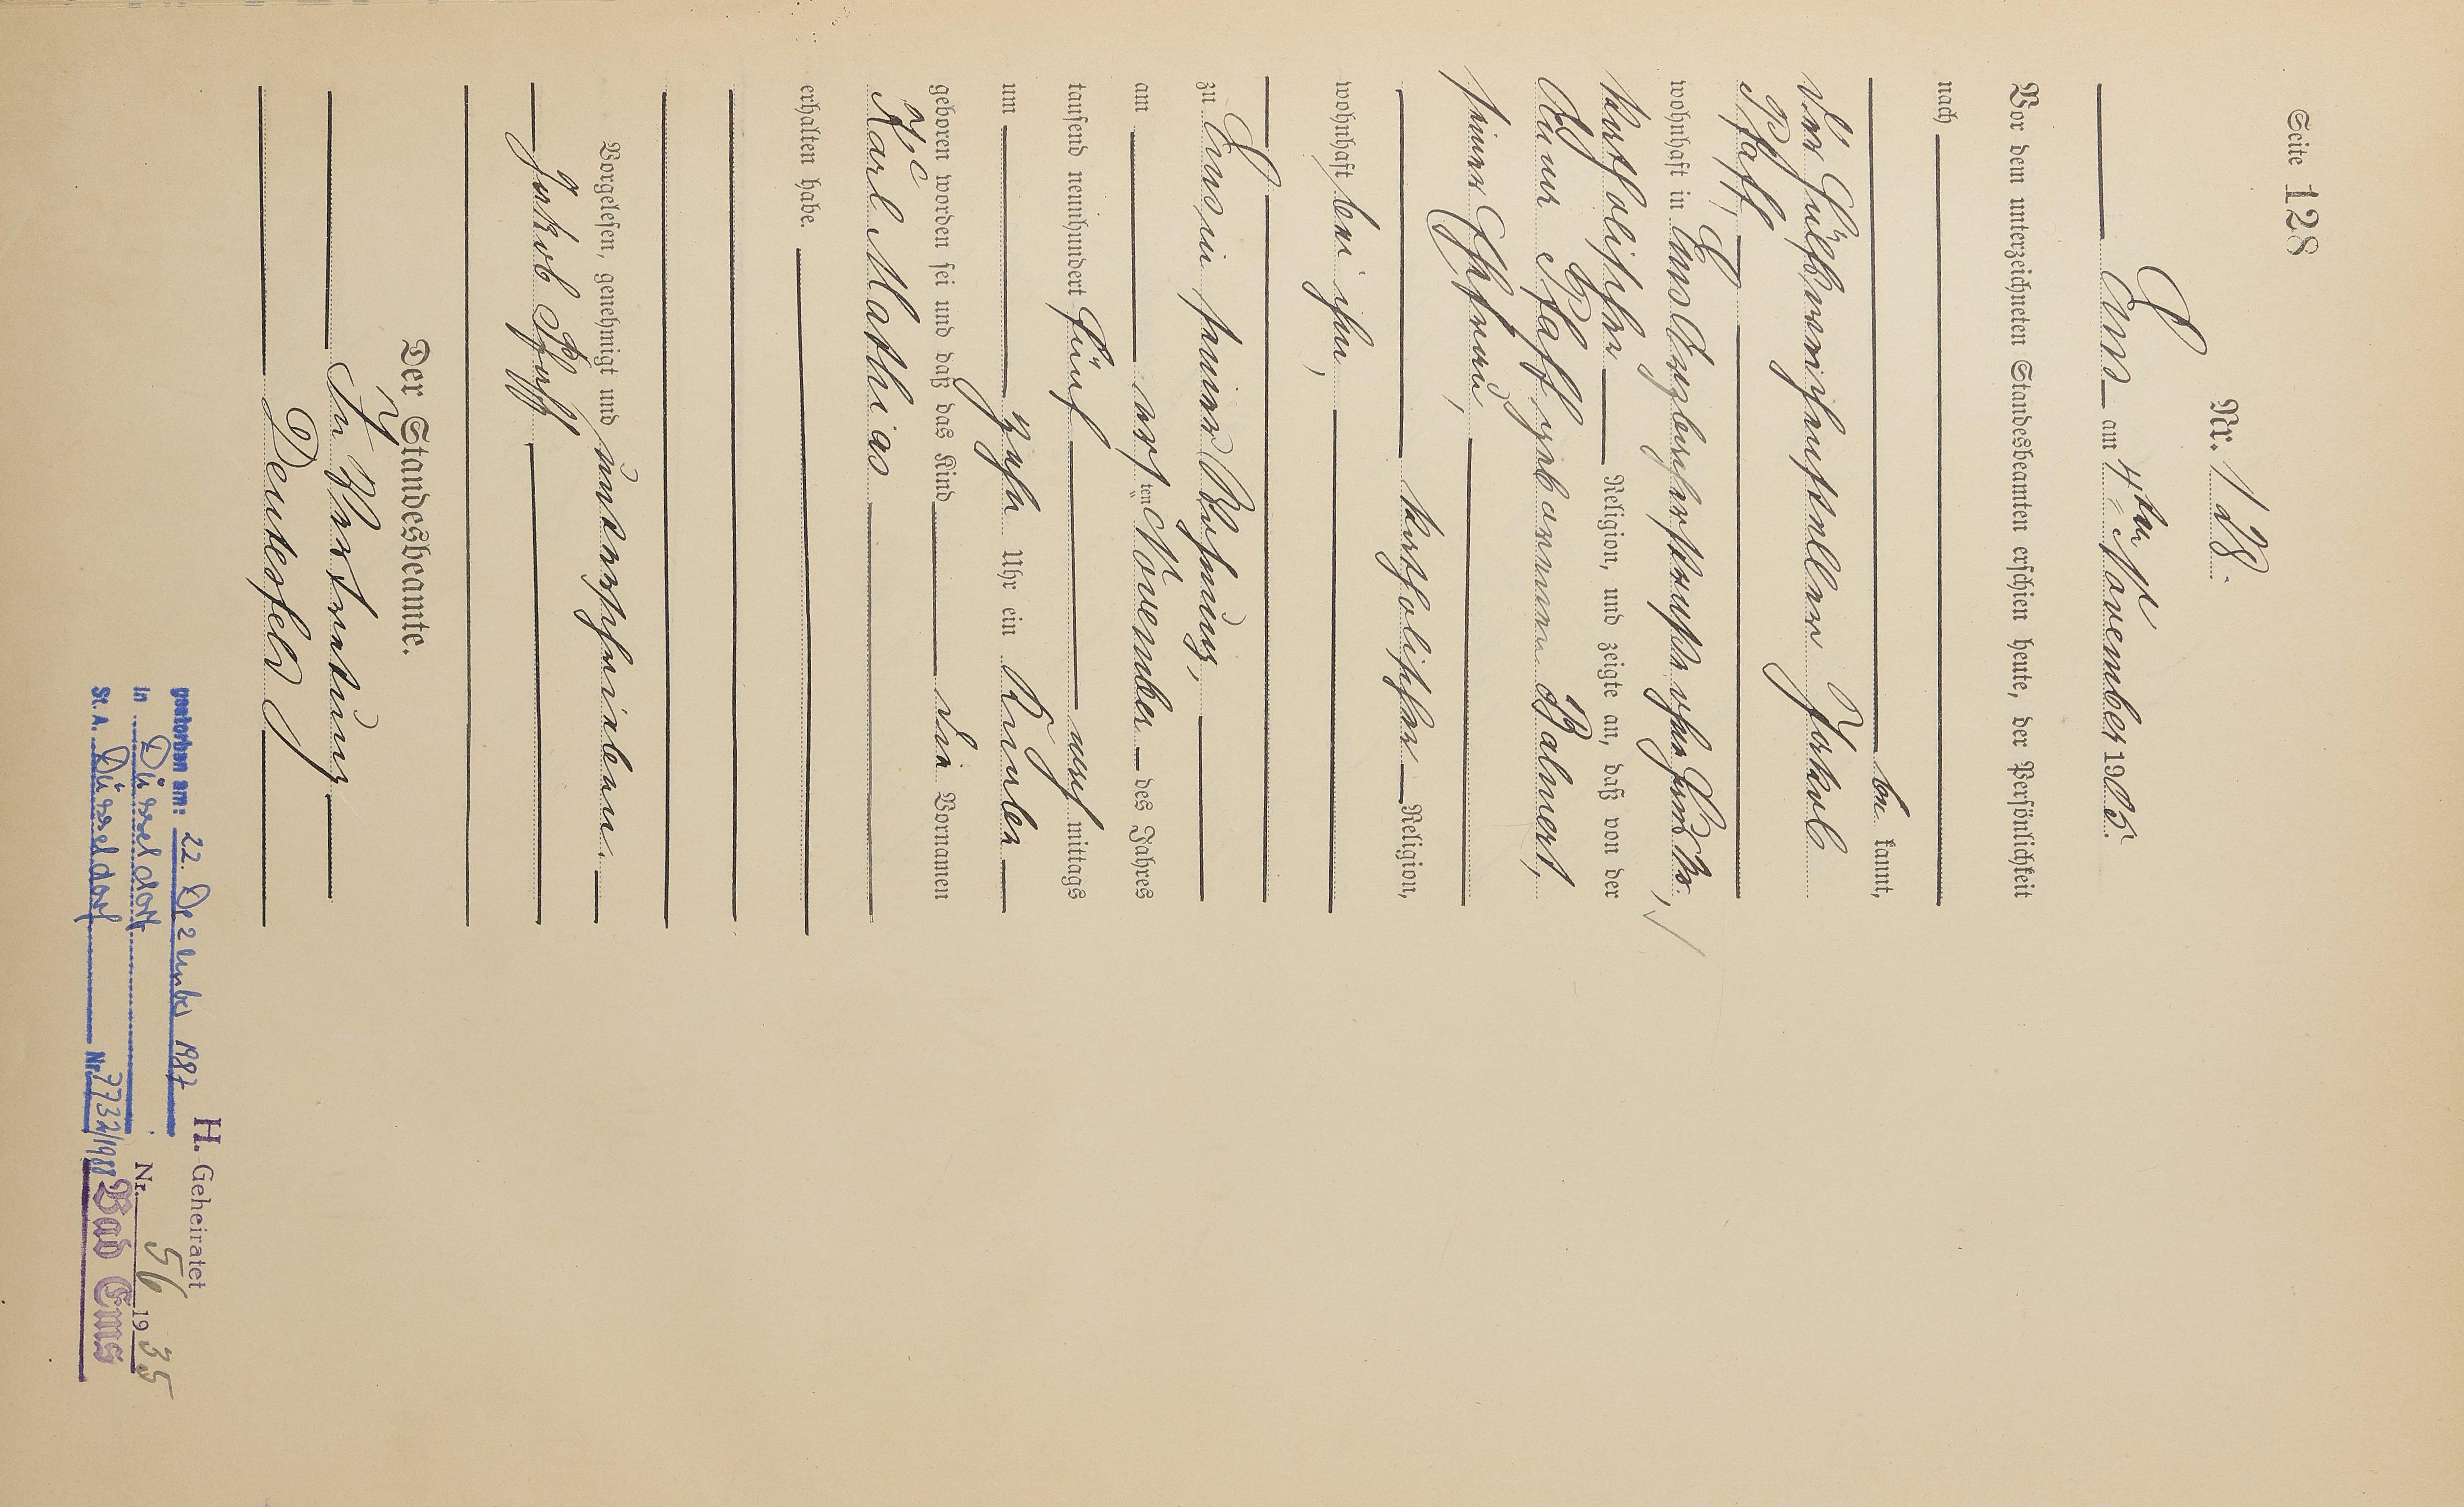 Seite 128
Nr. 128.
Ems am 4ten November 1905.
Vor dem unterzeichneten Standesbeamten erschien heute, der Persönlichkeit
nach
be kannt,
der Hülfsweichensteller Jakob
Pfaff,
wohnhaft in Ems, ohne
katholischer Religion, und zeigte an, daß von der
Anna Pfaff geborenen Balmert,
seiner Ehefrau,
katholischer Religion,
wohnhaft bei ihm,
zu Ems in seiner Wohnung,
am ersten November des Jahres
tausend neunhundert fünf nachmittags
um Uhr ein Knabe
geboren worden sei und daß das Kind die Vornamen
Karl Mathias
erhalten habe.
Vorgelesen, genehmigt und unterschrieben.
Jakob Pfaff
Der Standesbeamte.
In Vertretung
Deutesfeld
gestorben am: 22. Dezember 1987
in Düsseldorf
St. A. Düsseldorf Nr. 7732/1988
H. Geheiratet
Nr. 56 1935
Bad Ems